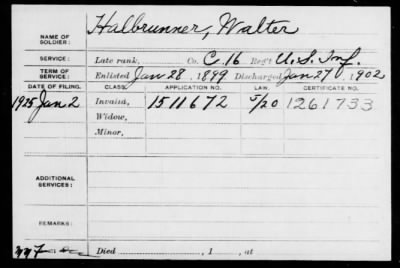 NAME OF SOLDIER: Halbrunner, Walter
SERVICE: Late rank, Co. C. 16 Reg't U. S. Inf.
TERM OF SERVICE: Enlisted Jan 28, 1899 Discharged Jan 27, 1902
DATE OF FILING. CLASS. APPLICATION NO. LAW. CERTIFICATE NO.
1925 Jan 2 Invalid, 1511672 5/20 1261733
Widow,
Minor,
ADDITIONAL SERVICES:
REMARKS:
Died , 1 , at